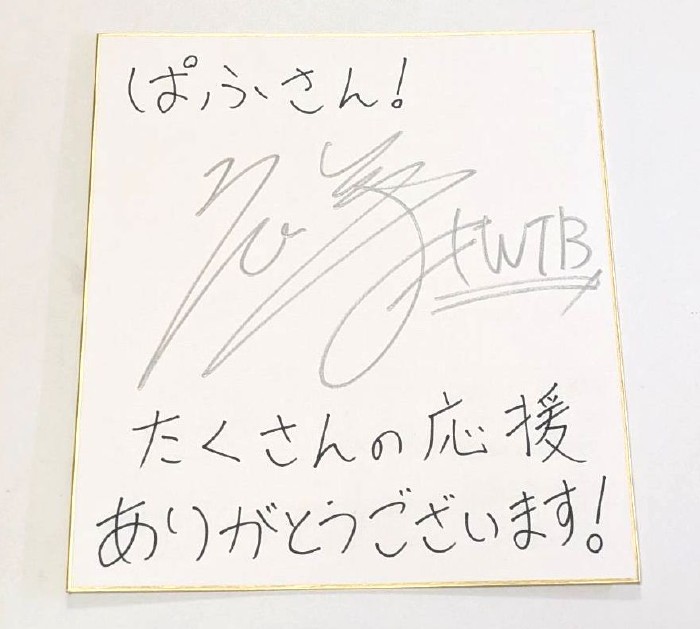 ぱふさん!
WTB
たくさんの応援
ありがとうございます!